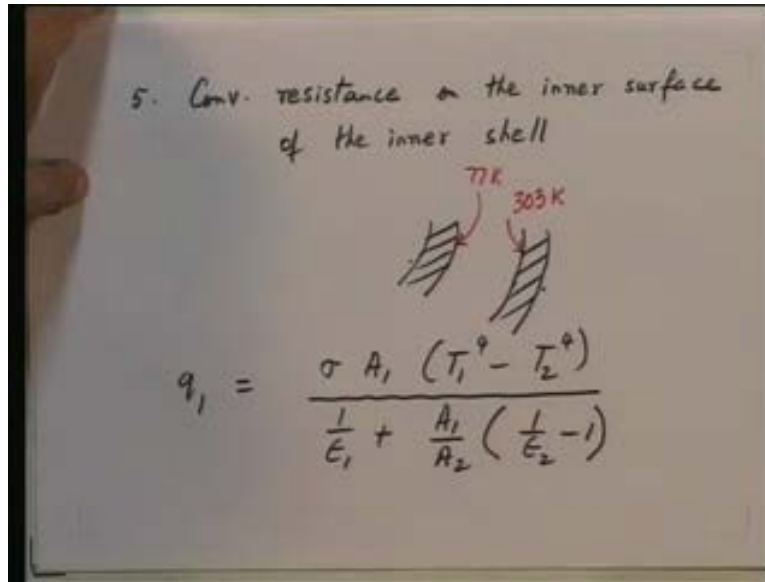 5. Conv. resistance on the inner surface
of the inner shell
77K
303K
q₁ = σ A₁ (T₁⁴ - T₂⁴) / (1/ϵ₁ + A₁/A₂ (1/ϵ₂ - 1))